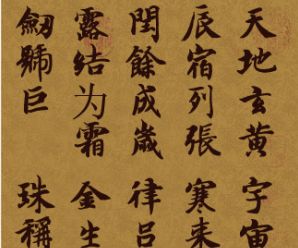 天地玄黃 宇宙
辰宿列張 寒来
閏餘成歲 律吕
露結为霜 金生
劒號巨 珠稱